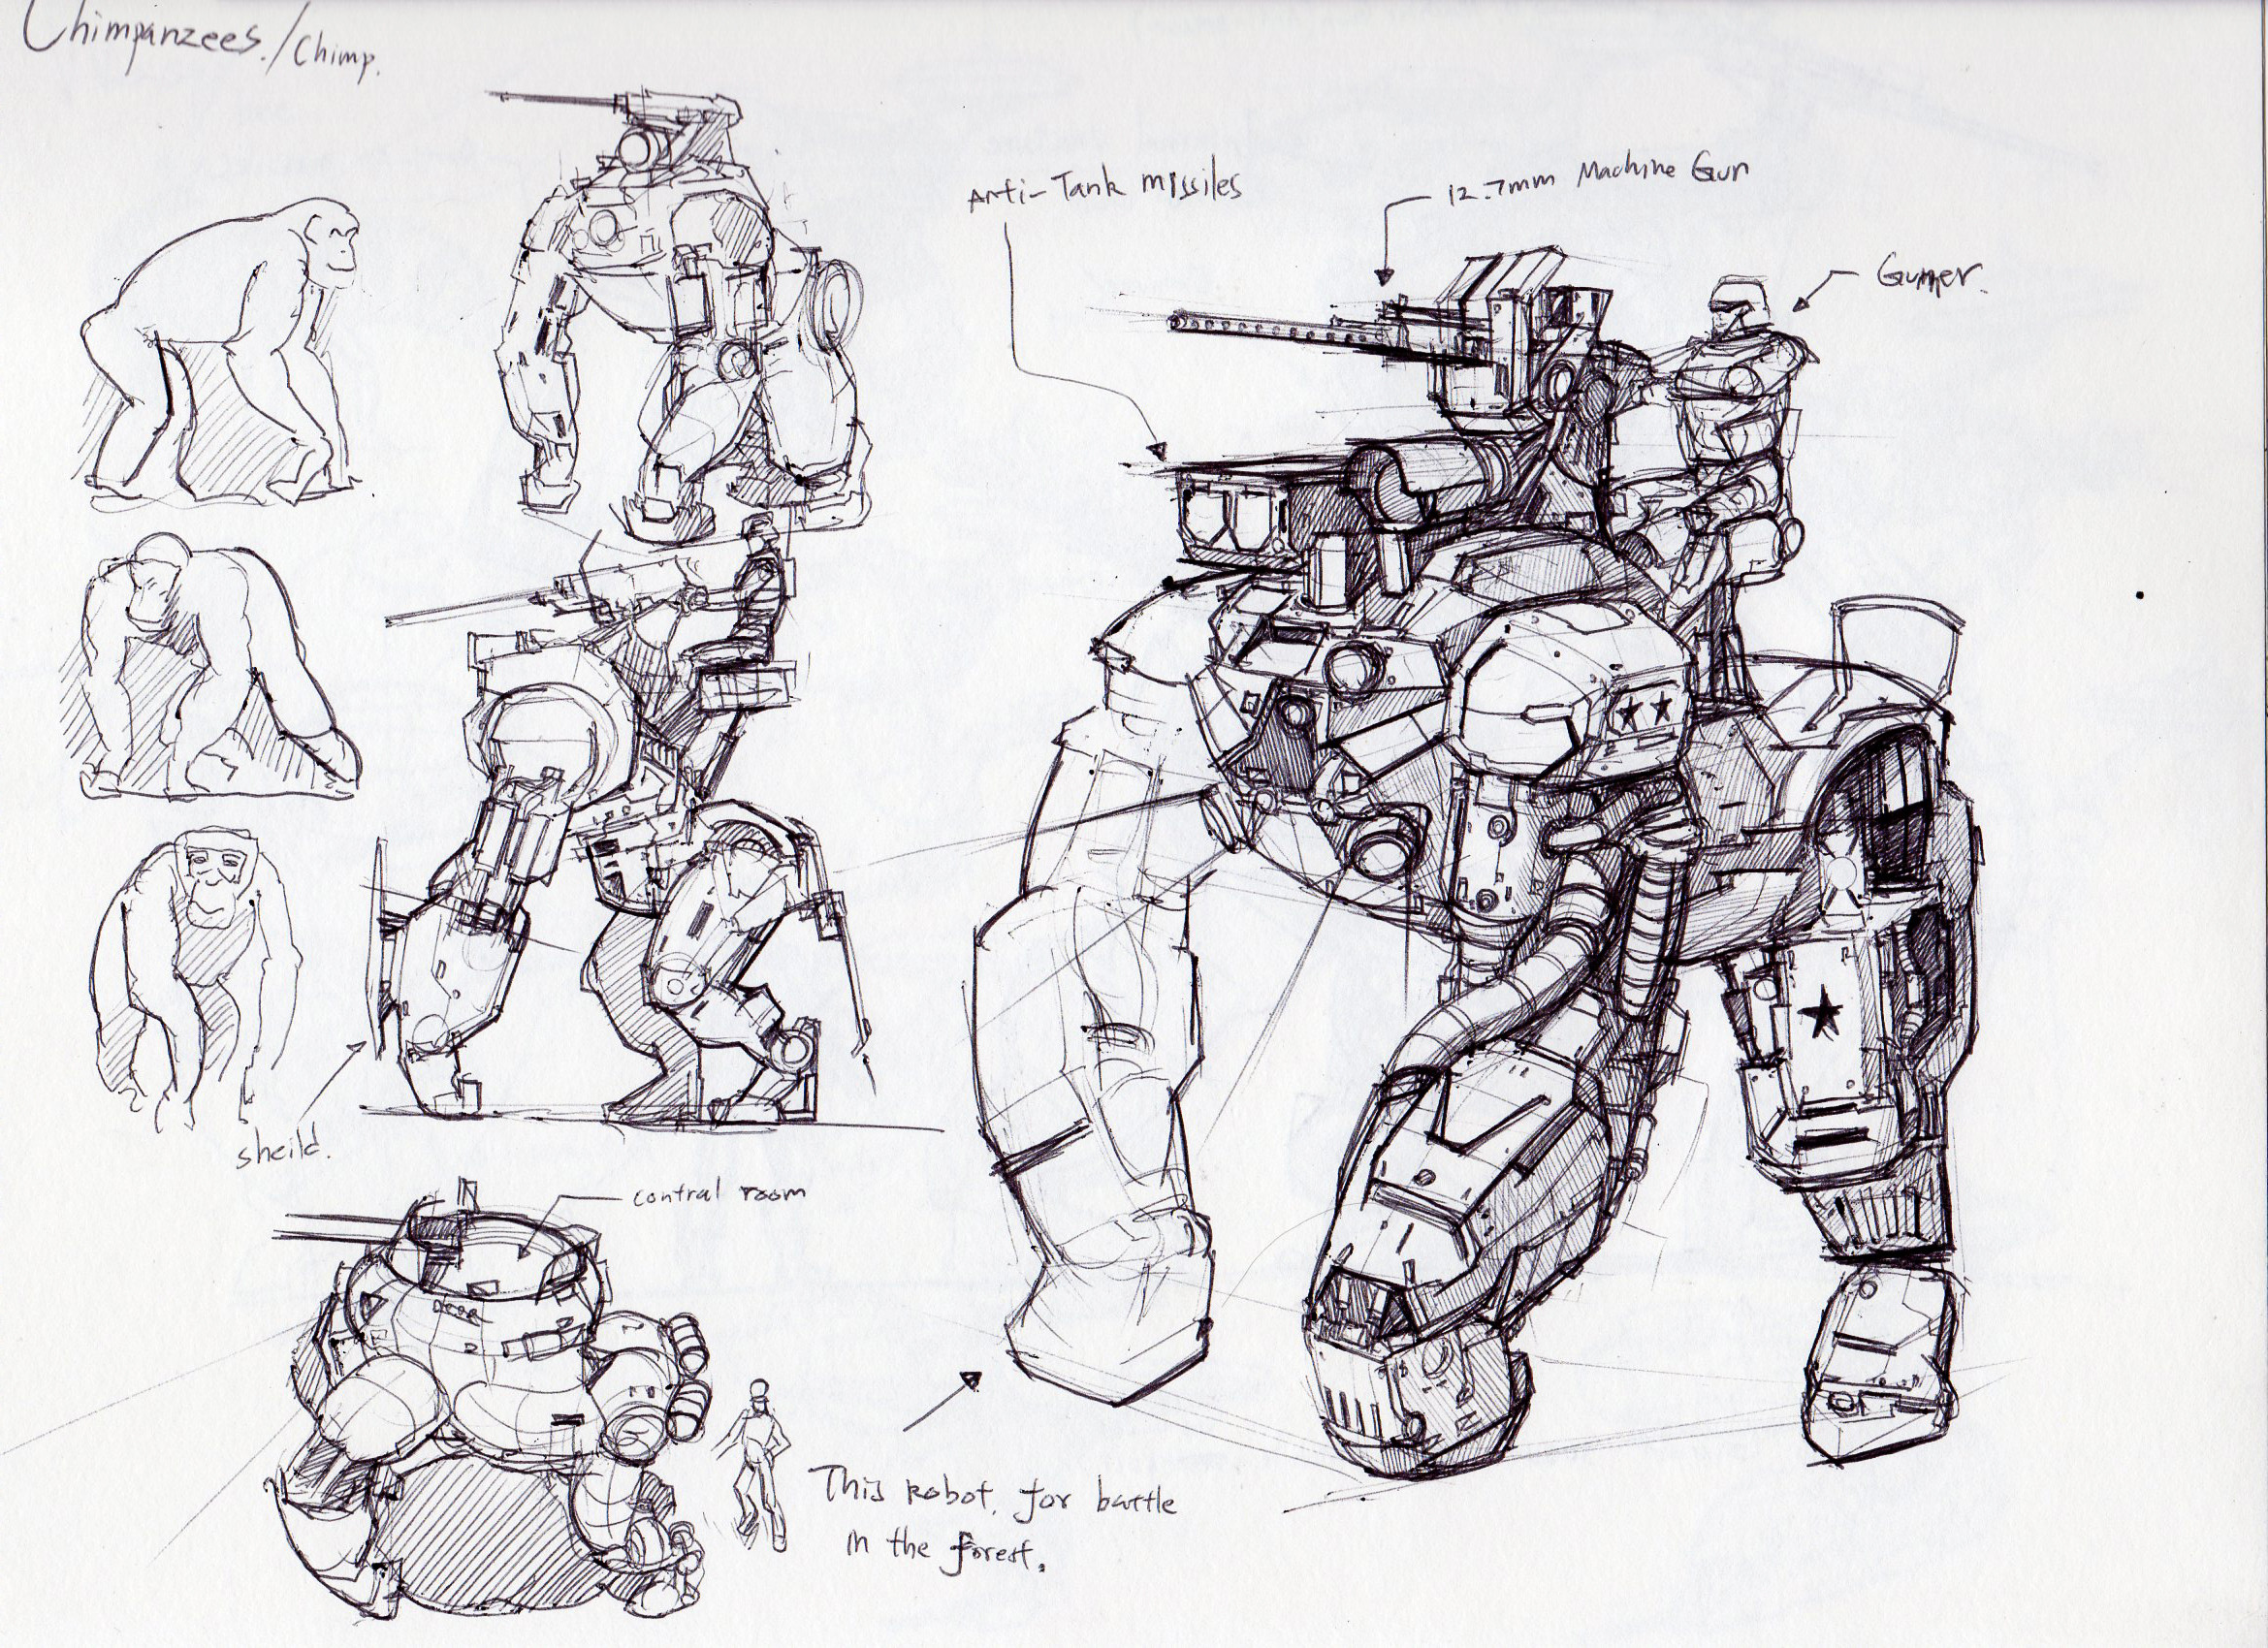 Chimpanzees./Chimp.
Anti-Tank missiles
12.7mm Machine Gun
Gunner.
sheild.
contral room
This Robot. for battle
in the forest.